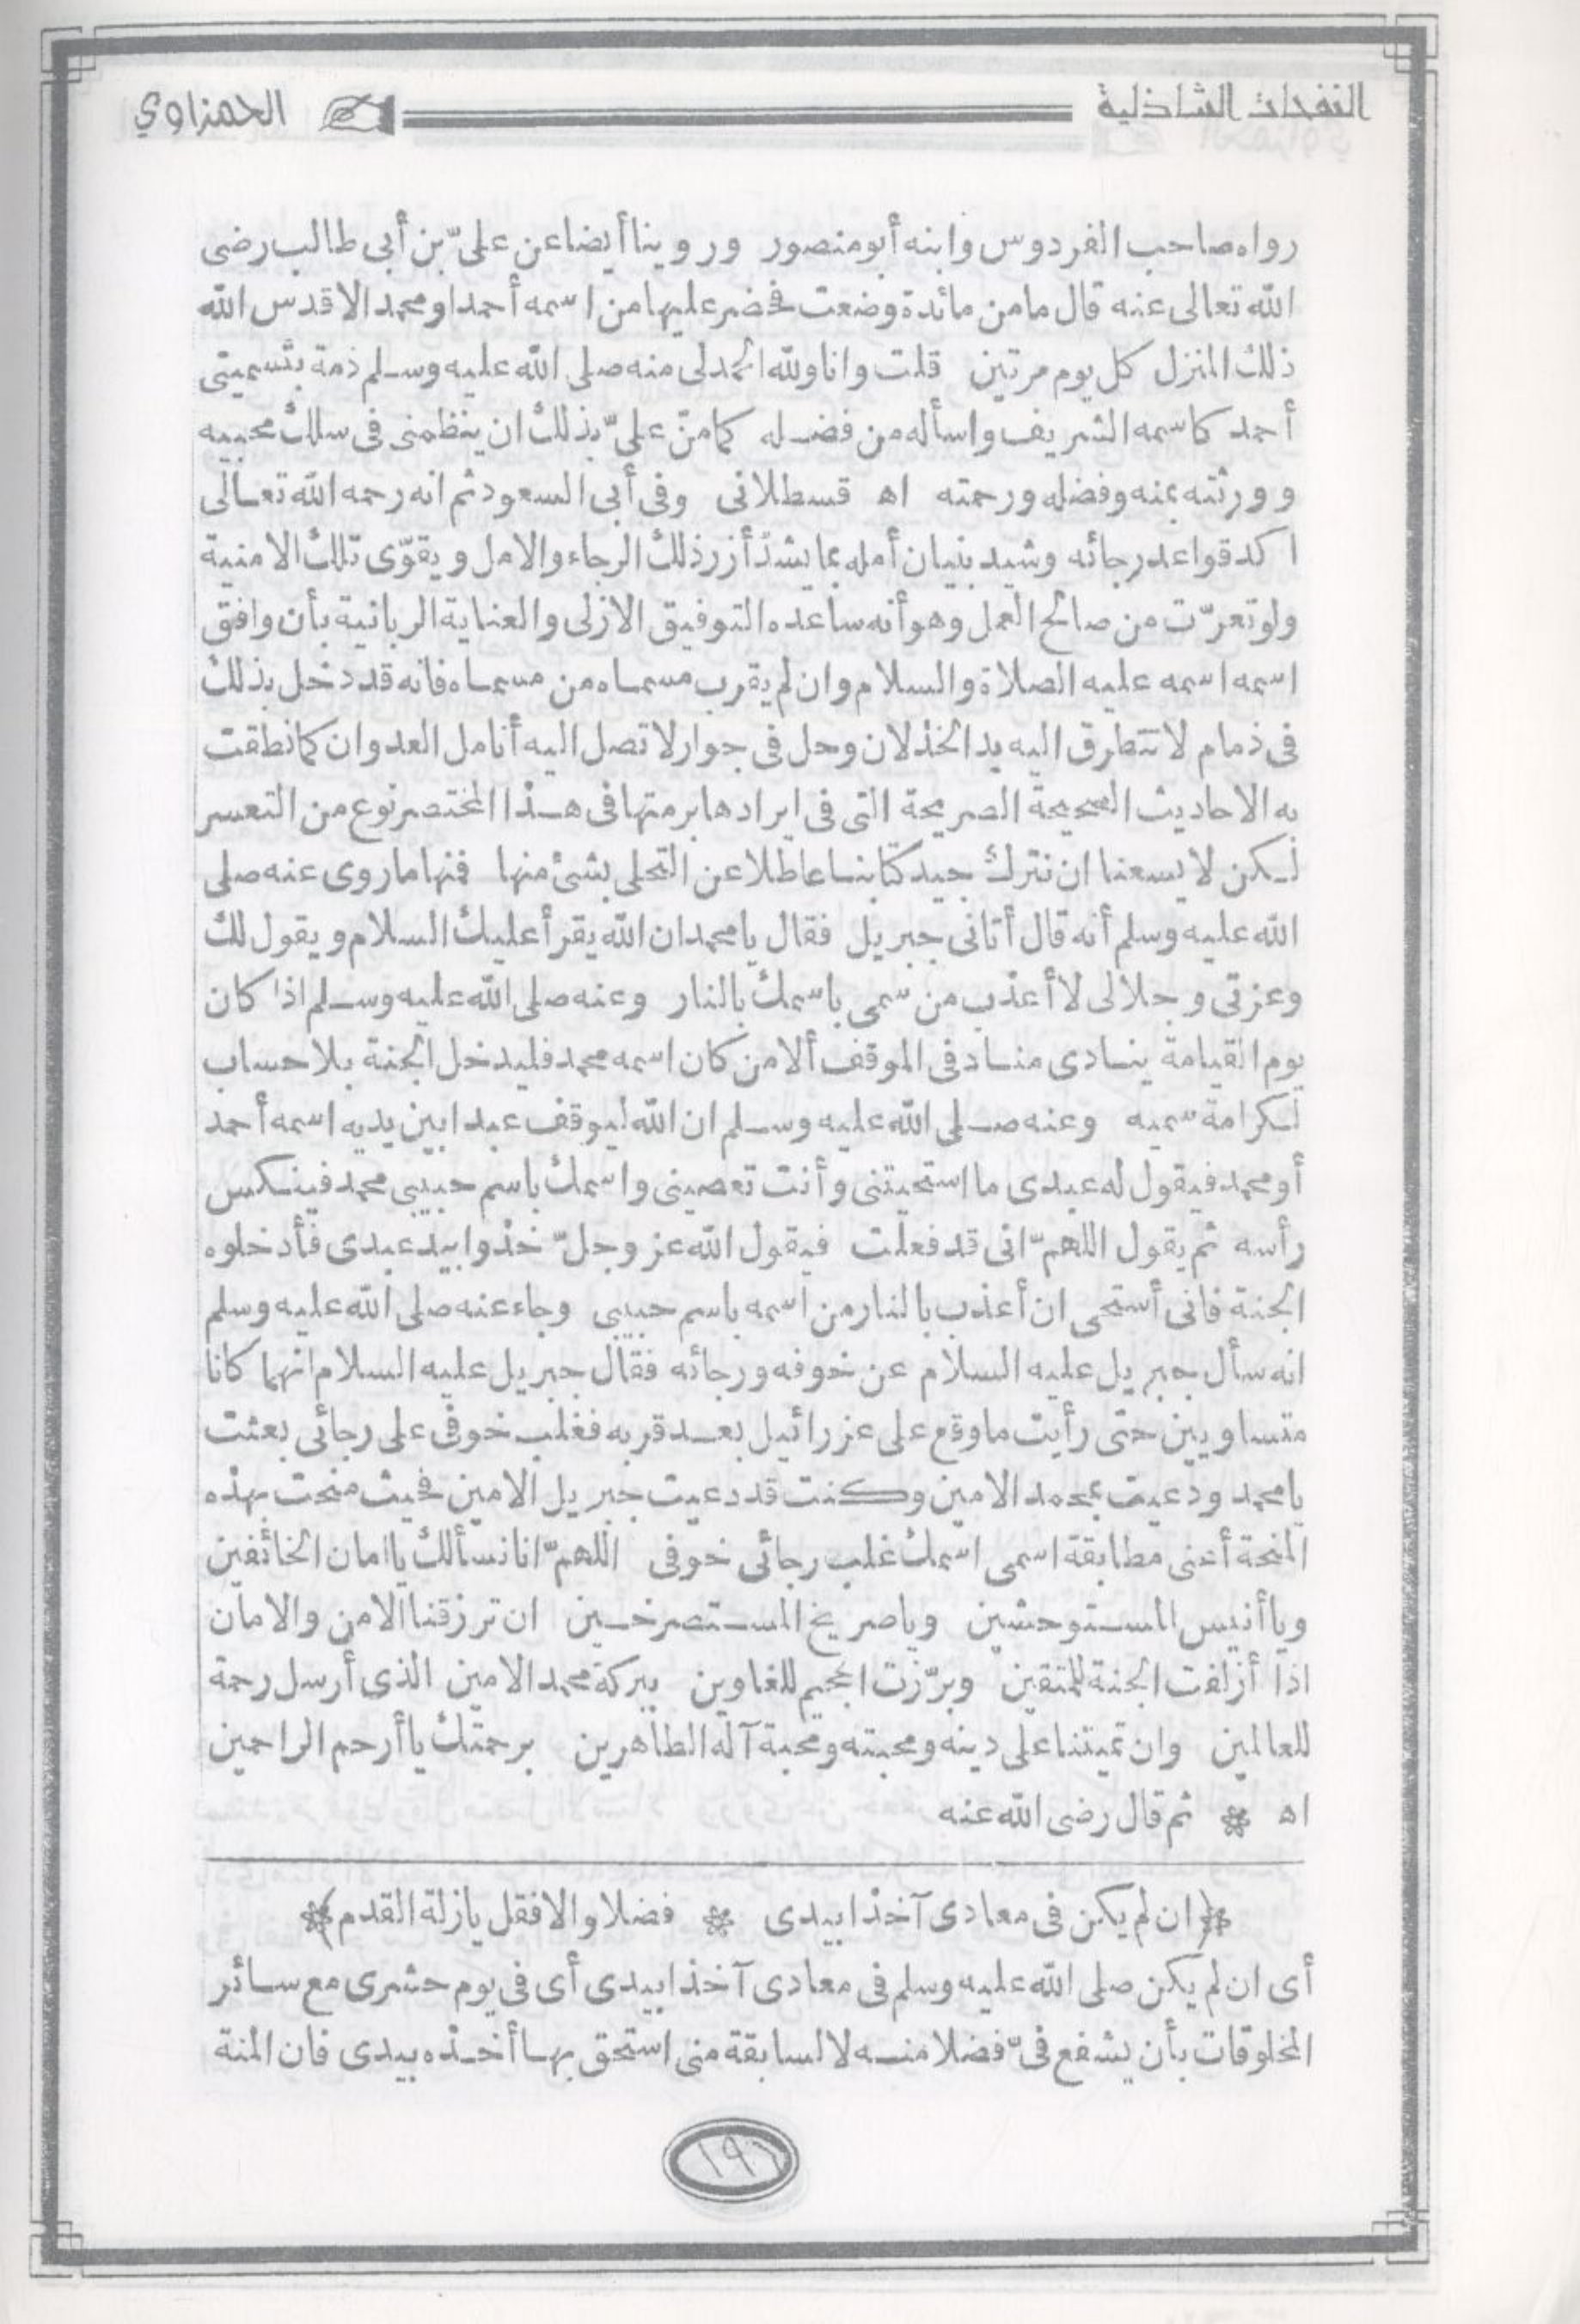 النفحات الشاذلية
الحمزاوي
رواه صاحب الفردوس وابنه أبو منصور وروينا أيضا عن علىّ بن أبى طالب رضى
الله تعالى عنه قال ما من مائدة وضعت فحضر عليها من اسمه أحمد او محمد الا قدس الله
ذلك المنزل كل يوم مرتين قلت وانا ولله الحمد لى منه صلى الله عليه وسلم ذمة بتسميتى
أحمد كاسمه الشريف واسأله من فضله كما منّ علىّ بذلك ان ينظمنى فى سلك محبيه
وورثته بمنه وفضله ورحمته اه قسطلانى وفى أبى السعود ثم انه رحمه الله تعالى
اكد قواعد رجائه وشيد بنيان أمله بما يشدّ أزر ذلك الرجاء والامل ويقوّى تلك الامنية
ولو تعرّت من صالح العمل وهو أنه ساعده التوفيق الازلى والعناية الربانية بأن وافق
اسمه اسمه عليه الصلاة والسلام وان لم يقرب مسماه من مسماه فانه قد دخل بذلك
فى ذمام لا تتطرق اليه يد الخذلان وحل فى جوار لا تصل اليه أنامل العدوان كما نطقت
به الاحاديث الصحيحة الصريحة التى فى ايرادها برمتها فى هذا المختصر نوع من التعسر
لكن لا يسعنا ان نترك جيد كتابنا عاطلا عن التحلى بشئ منها فمنها ما روى عنه صلى
الله عليه وسلم أنه قال أتانى جبريل فقال يا محمد ان الله يقرأ عليك السلام ويقول لك
وعزتى وجلالى لا أعذب من سمى باسمك بالنار وعنه صلى الله عليه وسلم اذا كان
يوم القيامة ينادى مناد فى الموقف ألا من كان اسمه محمد فليدخل الجنة بلا حساب
لكرامة سميه وعنه صلى الله عليه وسلم ان الله ليوقف عبدا بين يديه اسمه أحمد
أو محمد فيقول له عبدى ما استحيتنى وأنت تعصينى واسمك باسم حبيبى محمد فينكس
رأسه ثم يقول اللهمّ انى قد فعلت فيقول الله عز وجلّ خذوا بيد عبدى فأدخلوه
الجنة فانى أستحى ان أعذب بالنار من اسمه باسم حبيبى وجاء عنه صلى الله عليه وسلم
انه سأل جبريل عليه السلام عن خوفه ورجائه فقال جبريل عليه السلام انهما كانا
متساويين حتى رأيت ما وقع على عزرائيل بعد قربه فغلب خوفى على رجائى بعثت
يا محمد ودعيت بمحمد الامين وكنت قد دعيت جبريل الامين فحيث منحت بهذه
المنحة أعنى مطابقة اسمى اسمك غلب رجائى خوفى اللهمّ انا نسألك يا امان الخائفين
ويا أنيس المستوحشين ويا صريخ المستصرخين ان ترزقنا الامن والامان
اذا أزلفت الجنة للمتقين وبرّزت الجحيم للغاوين ببركة محمد الامين الذى أرسل رحمة
للعالمين وان تميتنا على دينه ومحبته ومحبة آله الطاهرين برحمتك يا أرحم الراحمين
اه * ثم قال رضى الله عنه
*(ان لم يكن فى معادى آخذا بيدى * فضلا والا فقل يا زلة القدم)*
أى ان لم يكن صلى الله عليه وسلم فى معادى آخذا بيدى أى فى يوم حشرى مع سائر
المخلوقات بأن يشفع فىّ فضلا منه لا لسابقة منى استحق بها أخذه بيدى فان المنة
١٩٦